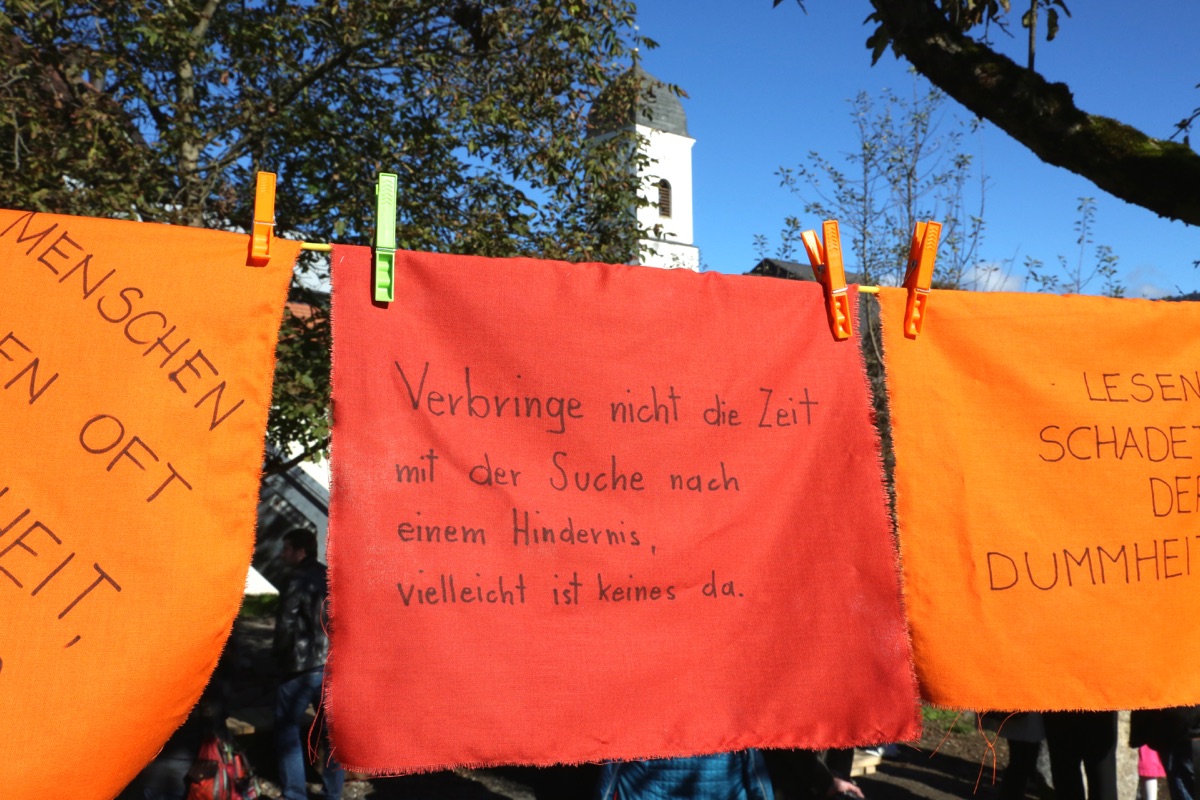 MENSCHEN
EN OFT
HEIT,
Verbringe nicht die Zeit
mit der Suche nach
einem Hindernis,
vielleicht ist keines da.
LESEN
SCHADET
DER
DUMMHEIT